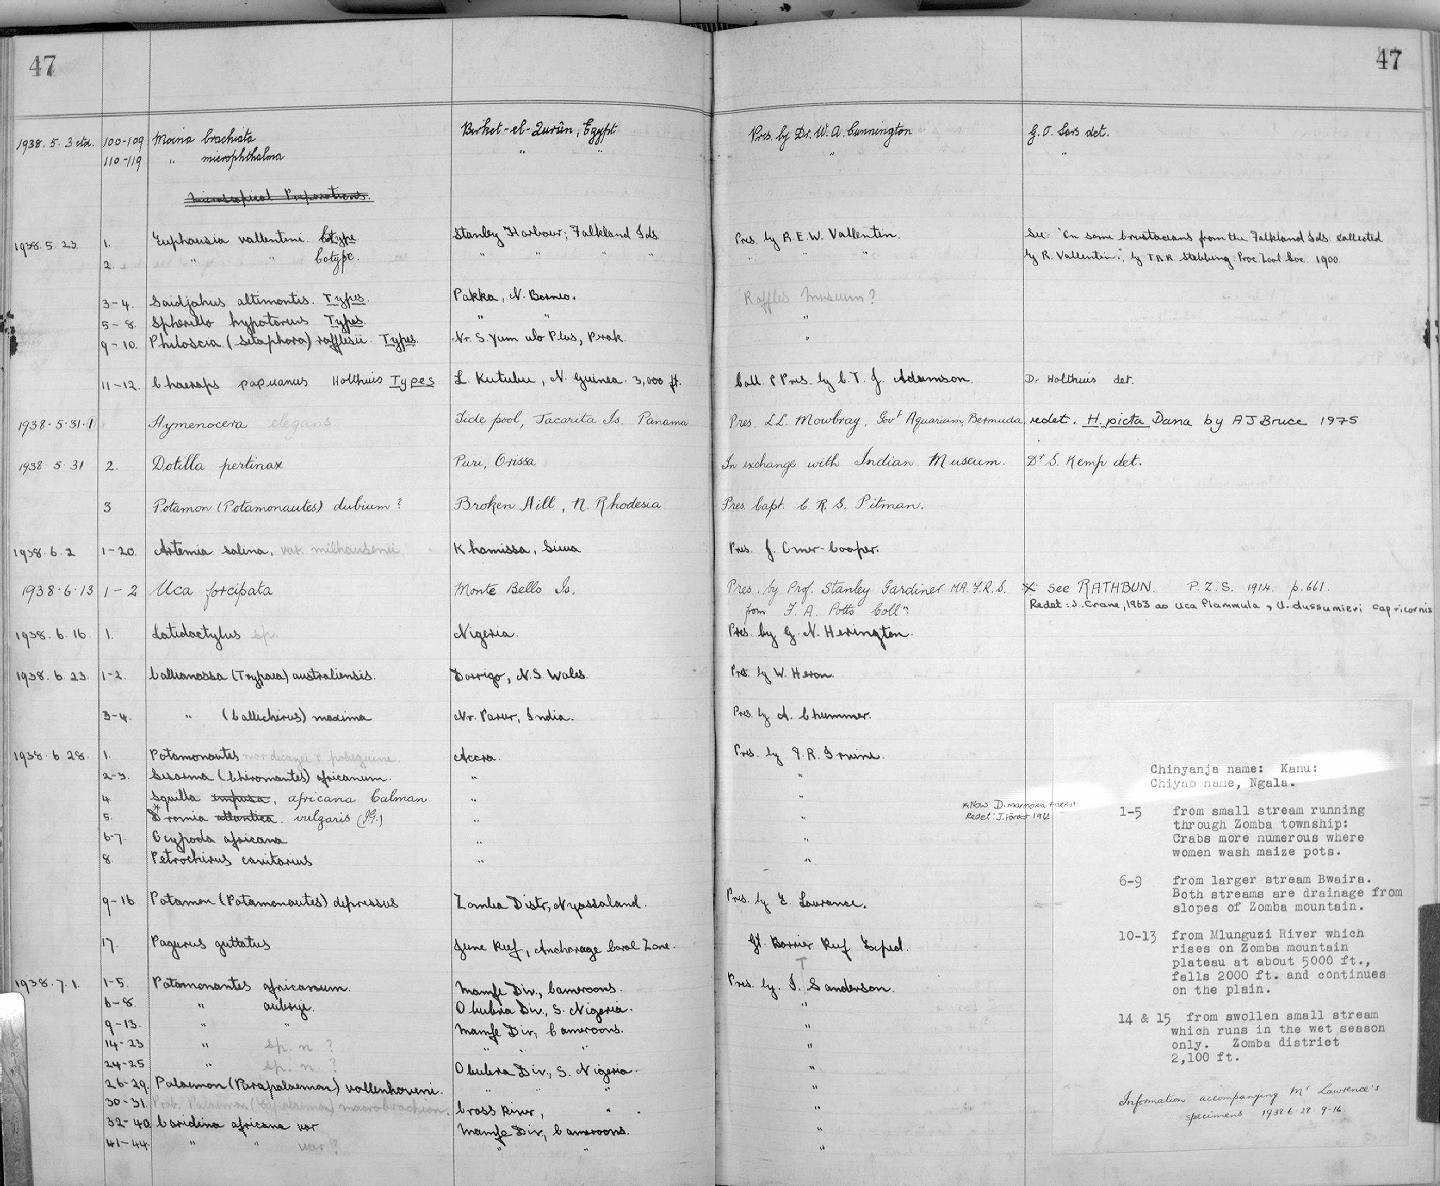 47
47
1938.5.3 etd. 100-109 Moina brachiata Birket-el-Qurûn, Egypt Pres by Dr. W. A. Cunnington G. O. Sars det.
110-119 " microphthalma " " " "
Microscopical Preparations.
1938.5.23 1. Euphausia vallentini. Cotype Stanley Harbour, Falkland Ids Pres by R.E.W. Vallentin. See "On some Crustaceans from the Falkland Ids collected
2. " " Cotype. " " " " " " by R. Vallentin", by T.R.R Stebbing. Proc. Zool. Soc. 1900.
3-4. Saidjahus altimontis. Types. Pakka, N. Borneo. Raffles Museum?
5-8. Spherillo hypotorus Types. " " "
9-10. Philoscia (Setaphora) rafflesii. Types. Nr. S. Yum ulo Plus, Prak. "
11-12. Chaeraps papuanus Holthuis Types L. Kutubu, N. Guinea. 3,000 ft. Coll. & Pres. by C. T. J. Adamson. Dr Holthuis det.
1938.5.31.1 Hymenocera elegans Tide pool, Jacarita Is. Panama Pres. L.L. Mowbray, Govt Aquarium, Bermuda redet. H. picta Dana by A J Bruce 1975
1938 5.31 2. Dotilla pertinax Puri, Orissa In exchange with Indian Museum. Dr S. Kemp det.
3 Potamon (Potamonautes) dubium? Broken Hill, N. Rhodesia Pres. Capt. C. R. S. Pitman.
1938.6.2 1-20. Artemia salina, var. milhausenii Khamissa, Siwa Pres. J. Omer-Cooper.
1938.6.13 1-2 Uca forcipata Monte Bello Is. Pres. by Prof. Stanley Gardiner M.A. F.R.S. X see RATHBUN. P.Z.S. 1914. p.661.
from F. A. Potts Colln. Redet: J. Crane, 1963 as Uca flammula & U. dussumieri capricornis
1938.6.16 1. Latidactylus sp. Nigeria. Pres. by G. N. Herington.
1938.6.23. 1-2. Callianassa (Trypaea) australiensis. Dorrigo, N.S. Wales. Pres. by W. Heron.
3-4. " (Callichirus) maxima Nr. Parur, India. Pres. by A. Chummer.
1938 6.28. 1. Potamonautes Accra. Pres. by F. R. Irvine.
2-3. Sesarma (Chiromantes) africanum. " "
4. Squilla empusa, africana Calman " "
5. *Dromia atlantica. vulgaris (Jr.) " " *Now D. marmorea FOREST
Redet: J. Forest 1912
6-7. Ocypoda africana " "
8. Petrochirus cavitarius " "
9-16 Potamon (Potamonautes) depressus Zomba Distr, Nyassaland. Pres. by E. Lawrance.
17. Pagurus guttatus June Reef, Anchorage Coral Zone. Gt. Barrier Reef Exped.
1938.7.1. 1-5. Potamonautes africanum. Mamfe Div., Cameroons. Pres. by I. T Sanderson.
6-8. " aubryi. Obubra Div., S. Nigeria. "
9-13. " " Mamfe Div, Cameroons. "
14-23 " sp. n ? " " " "
24-25 " sp. n. ? Obubra Div., S. Nigeria. "
26-29. Palaemon (Parapalaemon) vollenhoveni. " " " "
30-31. Prob. Palaemon macrobrachion. Cross River, " "
32-40. Caridina africana var Mamfe Div, Cameroons. "
41-44. " " var? " " "
Chinyanja name: Kanu:
Chiyao name, Ngala.
1-5 from small stream running
through Zomba township:
Crabs more numerous where
women wash maize pots.
6-9 from larger stream Bwaira.
Both streams are drainage from
slopes of Zomba mountain.
10-13 from Mlunguzi River which
rises on Zomba mountain
plateau at about 5000 ft.,
falls 2000 ft. and continues
on the plain.
14 & 15 from swollen small stream
which runs in the wet season
only. Zomba district
2,100 ft.
Information accompanying Mr Lawrence's
specimens 1938 6.28 9-16.